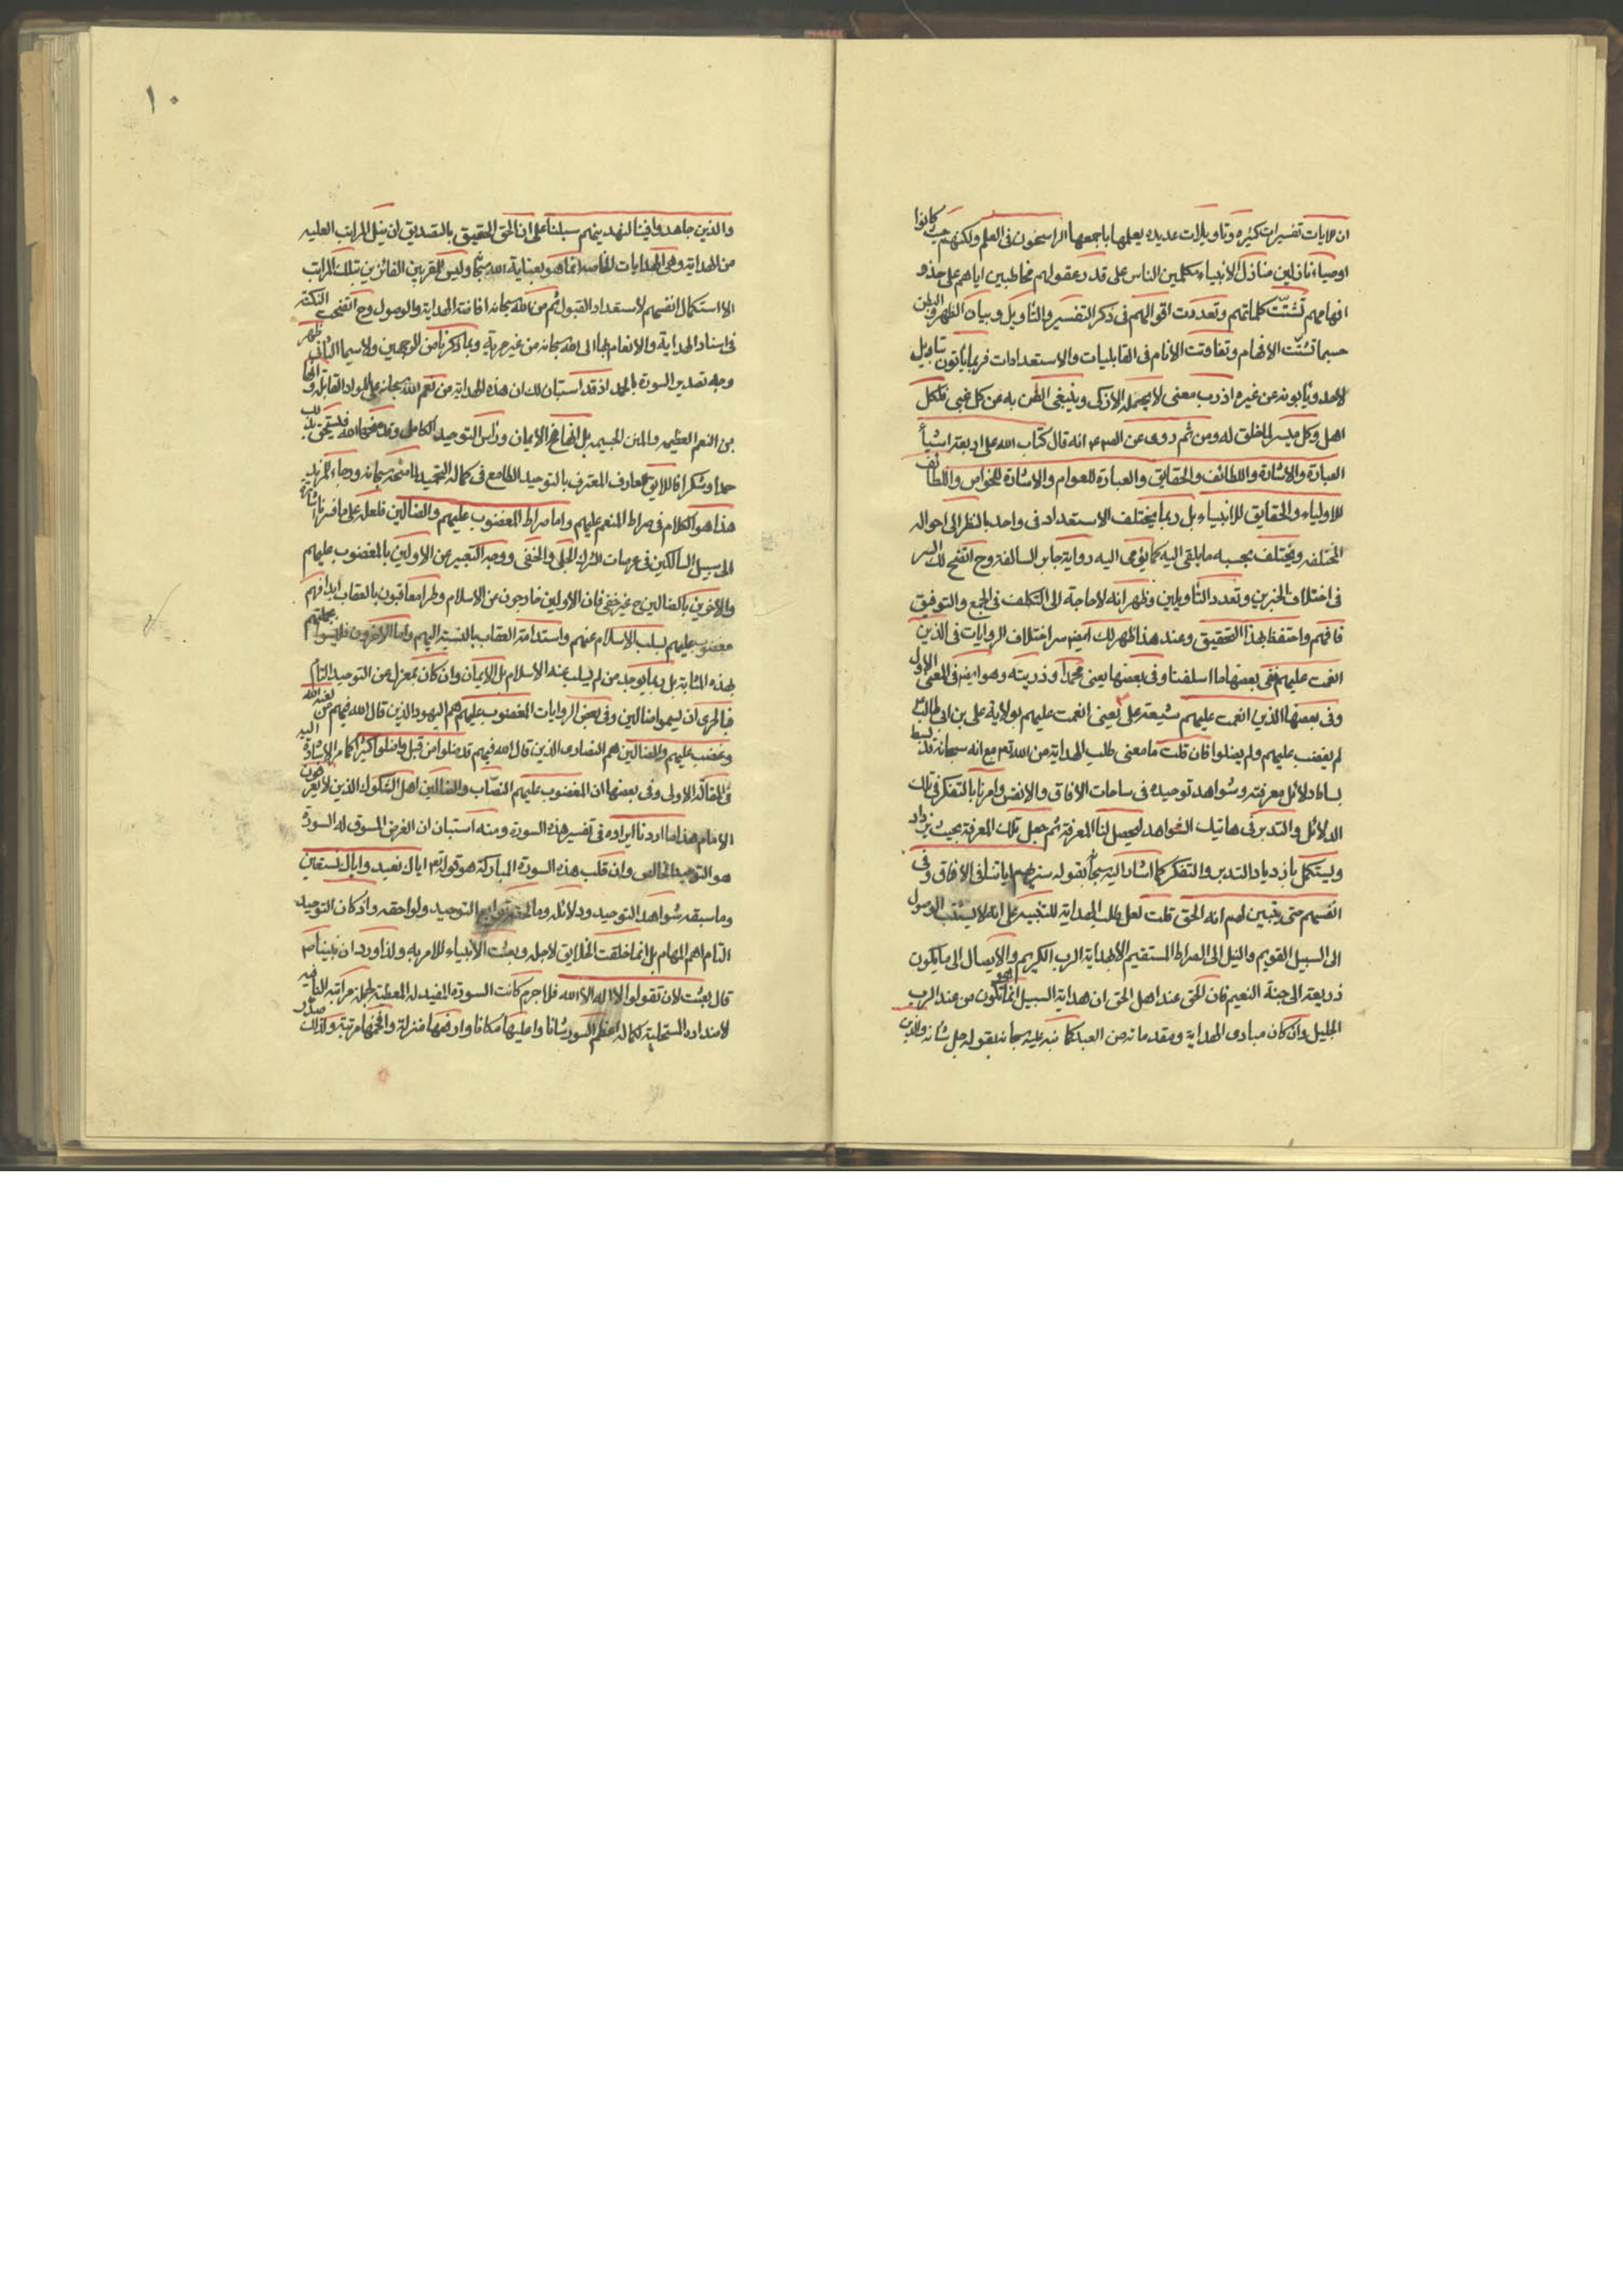 ان للايات تفسيرات كثيره وتاويلات عديده يعلمها باجمعها الراسخون فى العلم ولكنهم حيث كانوا
اوصياء نازلين منازل الانبياء مكلمين الناس على قدر عقولهم مخاطبين اياهم على حذو
افهامهم تشتت كلماتهم وتعددت اقوالهم فى ذكر التفسير والتاويل وبيان الظهر والبطن
حسبما تشتت الافهام وتفاوتت الانام فى القابليات والاستعدادات فربما ياتون بتاويل
لاحد ويابونه عن غيره اذ رب معنى لا يحتمله الا زكى وينبغى الظن به عن كل غبى فلكل
اهل وكل ميسر لما خلق له ومن ثم روى عن انه قال كتاب الله على اربعة اشياء
العبارة والاشارة واللطائف والحقايق والعبارة للعوام والاشارة للخواص واللطائف
للاولياء والحقايق للانبياء بل ربما يختلف الاستعداد فى واحد بالنظر الى احواله
المختلفه ويختلف بحسبه ما يلقى اليه كما يؤمى اليه رواية جابر السالفة وح اتضح لك السر
فى اختلاف الخبرين وتعدد التاويلين وظهر انه لا حاجة الى التكلف فى الجمع والتوفيق
فافهم واحتفظ بهذا التحقيق وعند هذا ظهر لك ايضا سر اختلاف الروايات فى الذين
انعمت عليهم ففى بعضها ما اسلفنا وفى بعضها يعنى محمدا وذريته وهو ايضا فى المعنى الاول
وفى بعضها الذين انعمت عليهم شيعة على يعنى انعمت عليهم بولاية على بن ابى طالب
لم يغضب عليهم ولم يضلوا فان قلت ما معنى طلب الهداية من الله تعم مع انه سبحانه قد بسط
بساط دلائل معرفته وشواهد توحيده فى ساحات الافاق والانفس وامرنا بالتفكر فى تلك
الدلائل والتدبر فى هاتيك الشواهد ليحصل لنا المعرفة ثم جعل تلك المعرفة بحيث يزداد
ويستكمل بازدياد التدبر والتفكر كما اشار اليه بقوله سنريهم اياتنا فى الافاق وفى
انفسهم حتى يتبين لهم انه الحق قلت لعل طلب الهداية للتنبيه على انه لا يستتب الوصول
الى السبيل القويم والنيل الى الصراط المستقيم الا بهداية الرب الكريم والايصال الى ما يكون
ذريعة الى جنة النعيم فان الحق عند اهل الحق ان هداية السبيل انما تكون من عند الرب
الجليل وان كان مبادى الهداية ومقدماته من العبد كما نبه عليه سبحانه بقوله جل شانه والذين
١٠
والذين جاهدوا فينا لنهدينهم سبلنا على ان الحق الحقيق بالتصديق ان نيل المراتب العليه
من الهداية وهى الهدايات الخاصه انما هو بعناية الله وليس للمقربين الفائزين بتلك المراتب
الا استكمال انفسهم لاستعداد القبول ثم من الله سبحانه افاضة الهداية والوصول وح اتضحت النكتة
فى اسناد الهداية والانعام الى الله سبحانه من غير مرية وبما ذكرنا من الوجهين ولا سيما الثانى ظهر
وجه تصدير السورة بالحمد اذ قد استبان لك ان هذه الهداية من نعم الله سبحانه على المواد القابله وانها
من النعم العظيمه والمنن الجسيمه بل انها مخ الايمان وراس التوحيد الكامل
حمدا وشكرا فاللايق للعارف المعترف بالتوحيد الطامع فى كماله التحميد لما منحه سبحانه ورجاء المزيد
هذا هو الكلام فى صراط المنعم عليهم واما صراط المغضوب عليهم والضالين فلعله على ما فسرنا اشارة
الى سبيل السالكين فى عرصات الشرك الجلى والخفى ووجه التعبير عن الاولين بالمغضوب عليهم
والاخرين بالضالين ح غير خفى فان الاولين خارجون عن الاسلام وطرا معاقبون بالعقاب ابدا فهم
مغضوب عليهم بسلب الاسلام عنهم واستدامة العقاب بالنسبة اليهم واما الاخرون فليسوا بجملتهم
بهذه المثابة بل ربما يوجد من لم يسلب عنه الاسلام بل الايمان وان كان بمعزل عن التوحيد التام
فبالحرى ان يسموا ضالين وفى بعض الروايات المغضوب عليهم هم اليهود الذين قال الله فيهم من لعنه الله
وغضب عليهم والضالين هم النصارى الذين قال الله فيهم قد ضلوا من قبل واضلوا كثيرا كما مر الاشارة اليه
فى المقالة الاولى وفى بعضها ان المغضوب عليهم النصاب والضالين اهل الشكوك الذين لا يعرفون
الامام هذا ما اردنا ايراده فى تفسير هذه السورة ومنه استبان ان الغرض المسوق له السورة
هو التوحيد الخالص وان قلب هذه السورة المباركة هو قوله تعم اياك نعبد واياك نستعين
وما سبقه شواهد التوحيد ودلائله وما لحقه توابع التوحيد ولواحقه واذ كان التوحيد
التام اهم المهام بل انما خلقت الخلايق لاجله وبعثت الانبياء للامر به ولذا ورد ان نبينا ص
قال بعثت لان تقولوا لا اله الا الله فلا جرم كانت السورة المفيد له المعطية لجملة مراتبه النافيه
لاضداده المستجلبة لكماله اعظم السور شانا واعليها مكانا وارفعها منزلة وافخمها مرتبة ولذلك صدر